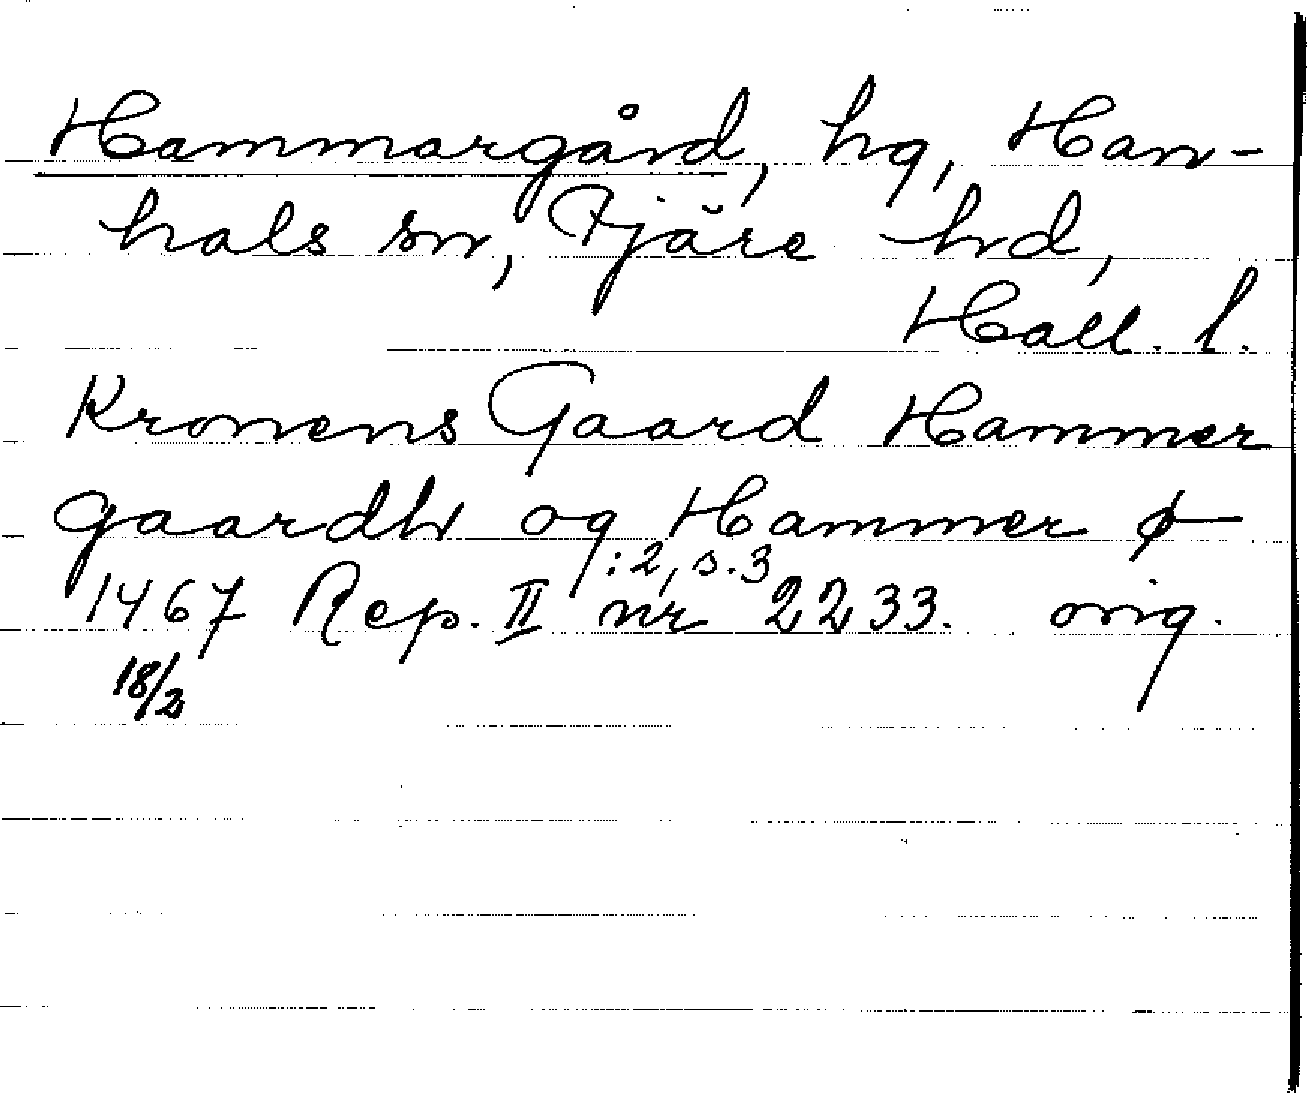 Hammargård, hg, Han-
hals sn, Fjäre hd,
Hall. l.
Kronens Gaard Hammer
gaardh og Hammer ø
:2, s. 3
1467 Rep. II nr 2233. orig.
18/2